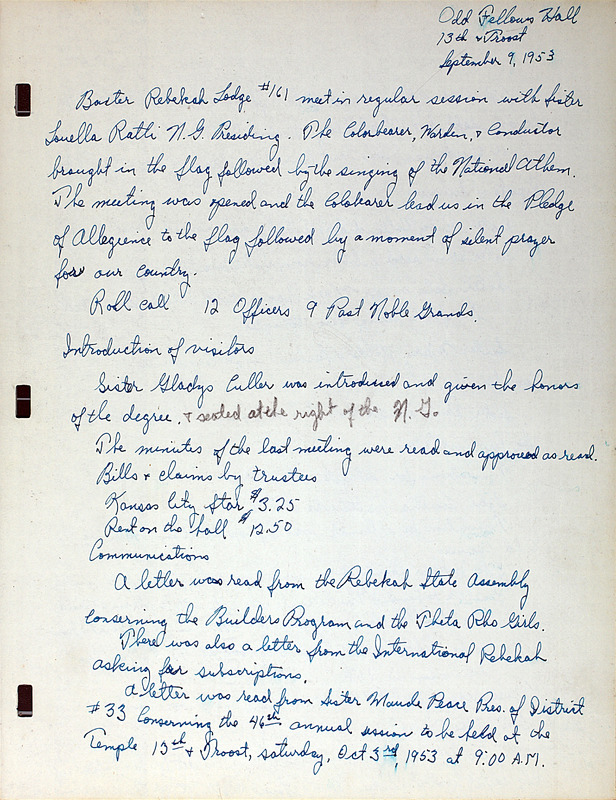 Odd Fellows Hall
13th & Troost
September 9, 1953
Baxter Rebekah Lodge #161 meet in regular session with Sister
Louella Ratti N.G. Presiding. The Colorbearer, Warden, & Conductor
brought in the flag followed by the singing of the National Athem.
The meeting was opened and the Colobearer lead us in the Pledge
of Allegience to the flag followed by a moment of silent prayer
for our Country.
Roll call 12 Officers 9 Past Noble Grands.
Introduction of visitors
Sister Gladys Culler was introdused and given the honors
of the degree. & seated at the right of the N.G.
The minutes of the last meeting were read and approved as read.
Bills & claims by trustees
Kansas City Star $3.25
Rent on the hall $12.50
Communications
A letter was read from the Rebekah State Assembly
conserning the Builders Program and the Theta Rho Girls.
There was also a letter from the International Rebekah
asking for subscriptions.
A letter was read from Sister Maude Peace Pres. of District
#33 Conserning the 46th annual session to be held at the
Temple 13th & Troost, saturday, Oct 3rd, 1953 at 9:00 A.M.